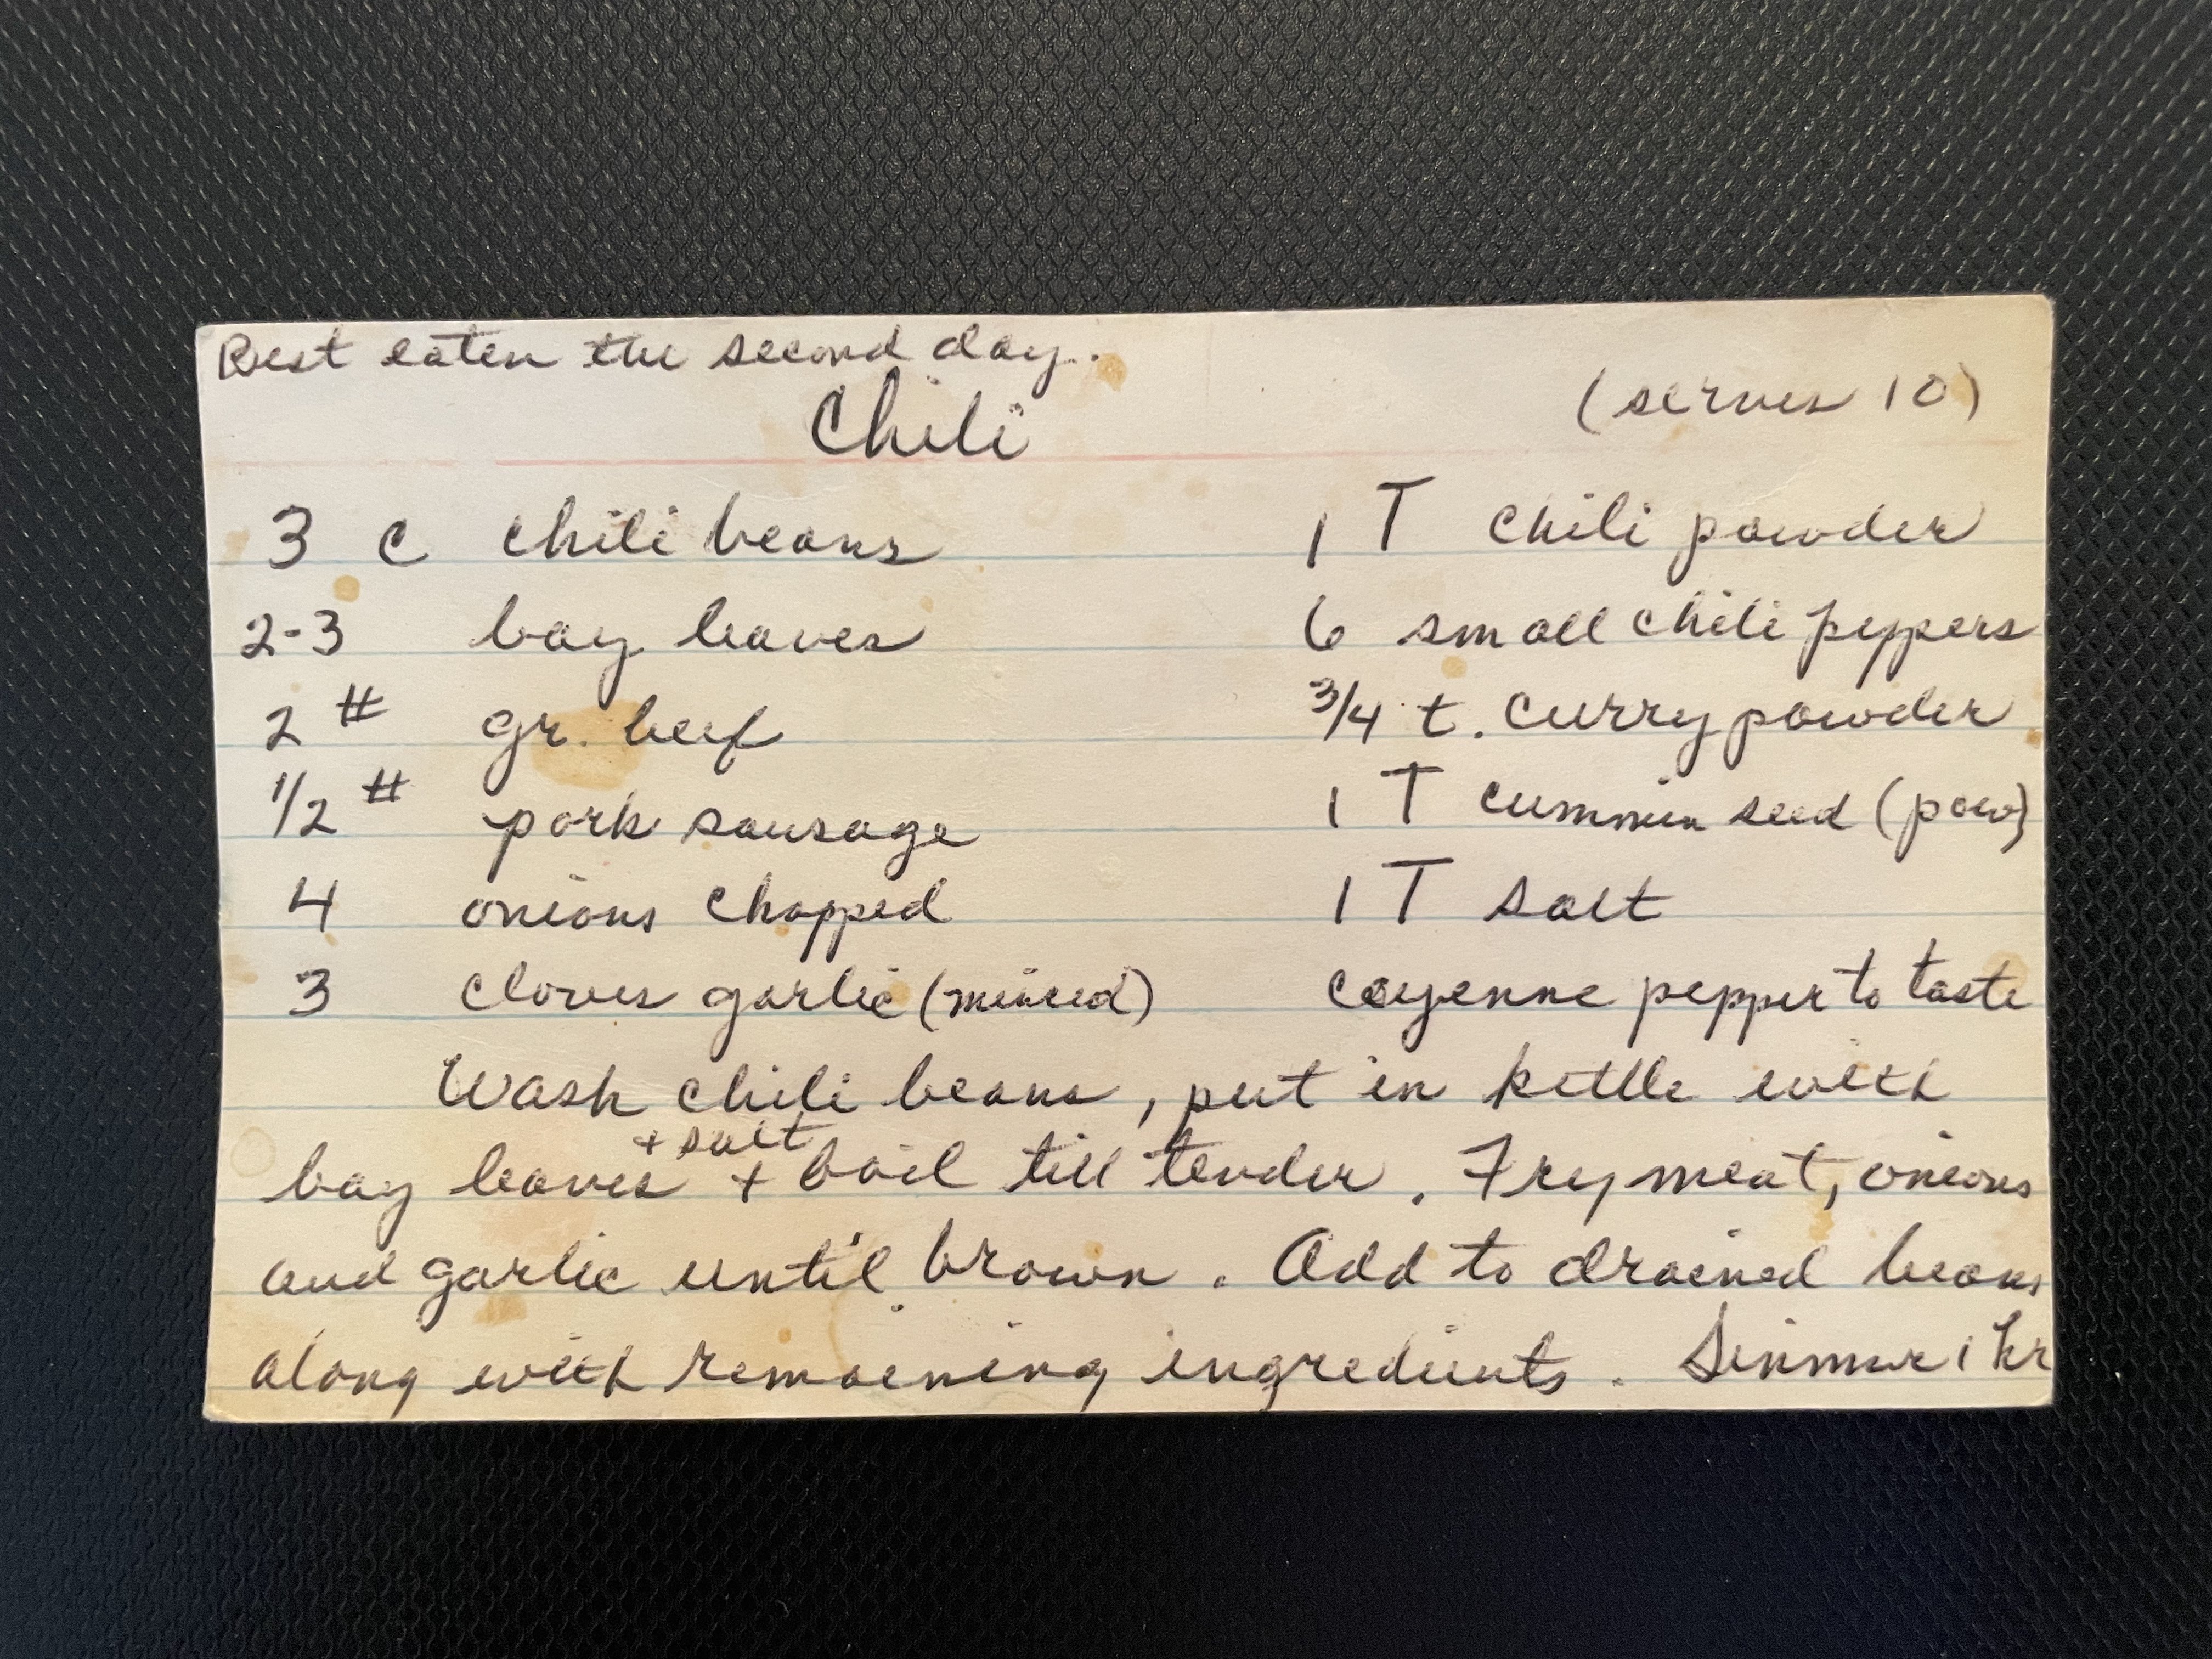 Best eaten the second day.
Chili
(serves 10)
3 c chili beans
2-3 bay leaves
2 # gr. beef
1/2 # pork sausage
4 onions chopped
3 cloves garlic (minced)
1 T chili powder
6 small chili peppers
3/4 t. curry powder
1 T cummin seed (pow)
1 T salt
cayenne pepper to taste
Wash chili beans, put in kettle with
+ salt
bay leaves + boil till tender. Fry meat, onions
and garlic until brown. Add to drained beans
along with remaining ingredients. Simmer 1 hr